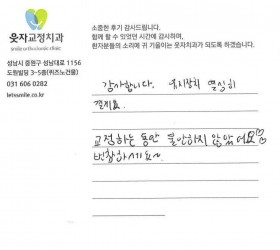 웃자교정치과
성남시 중원구 성남대로 1156
도원빌딩 3-5층(퀴즈노건물)
031 606 0282
letssmile.co.kr
소중한 후기 감사드립니다.
함께 할 수 있었던 시간에 감사하며,
환자분들의 소리에 귀 기울이는 웃자교정치과가 되도록 하겠습니다.
감사합니다. 유지장치 열심히
낄게요.
교정하는 동안 불안하지 않았어요♡♡
번창하세요~